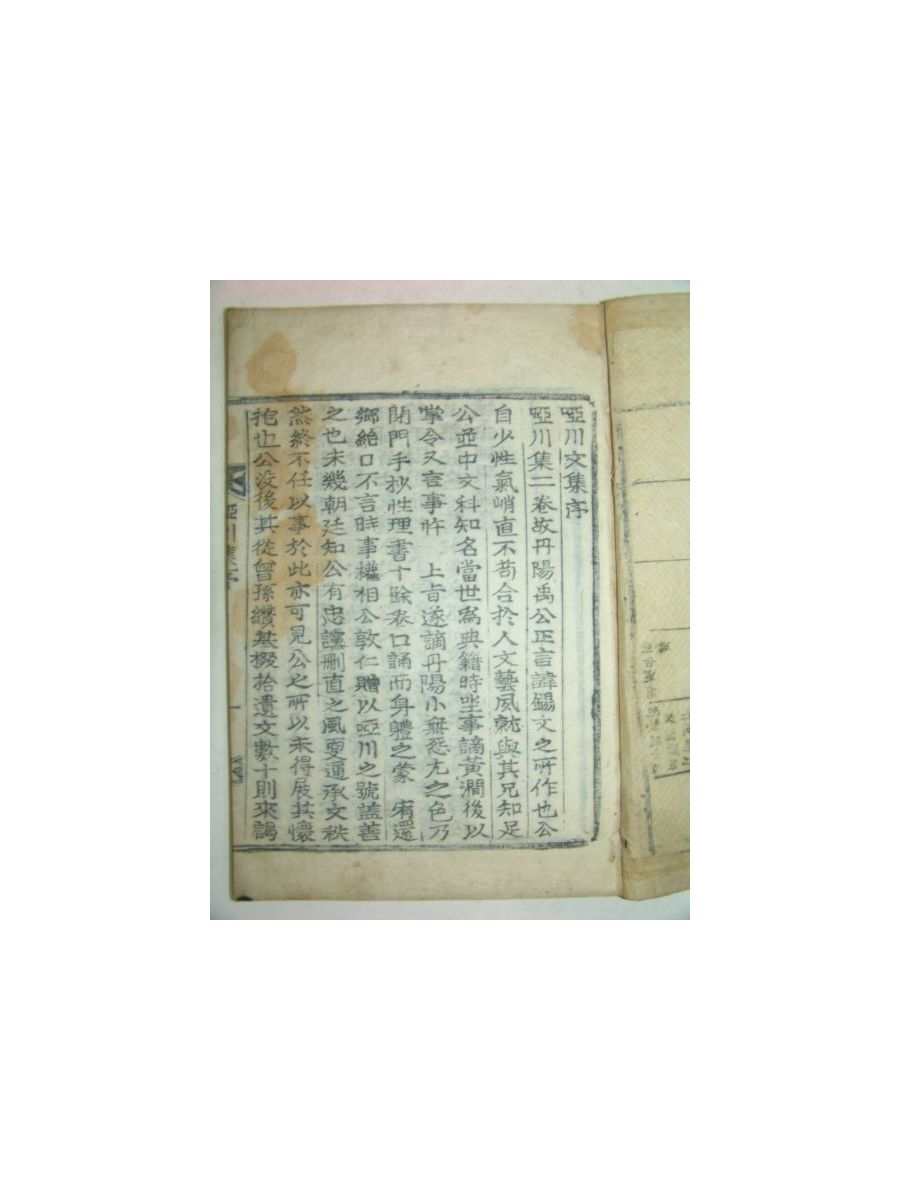 啞川文集序
啞川集二卷故丹陽禹公正言諱錫文之所作也公
自少性氣峭直不苟合於人文藝夙就與其兄知足
公並中文科知名當世爲典籍時坐事謫黃澗後以
掌令又言事忤 上旨遂謫丹陽小無怨尤之色乃
閉門手抄性理書十餘卷口誦而身軆之蒙 宥還
鄉絶口不言時事權相公敦仁贈以啞川之號盖善
之也未幾朝廷知公有忠讜剛直之風更通承文秩
然終不任以事於此亦可見公之所以未得展其懷
抱也公没後其從曾孫纘基掇拾遺文數十則來謁
啞川集序 一